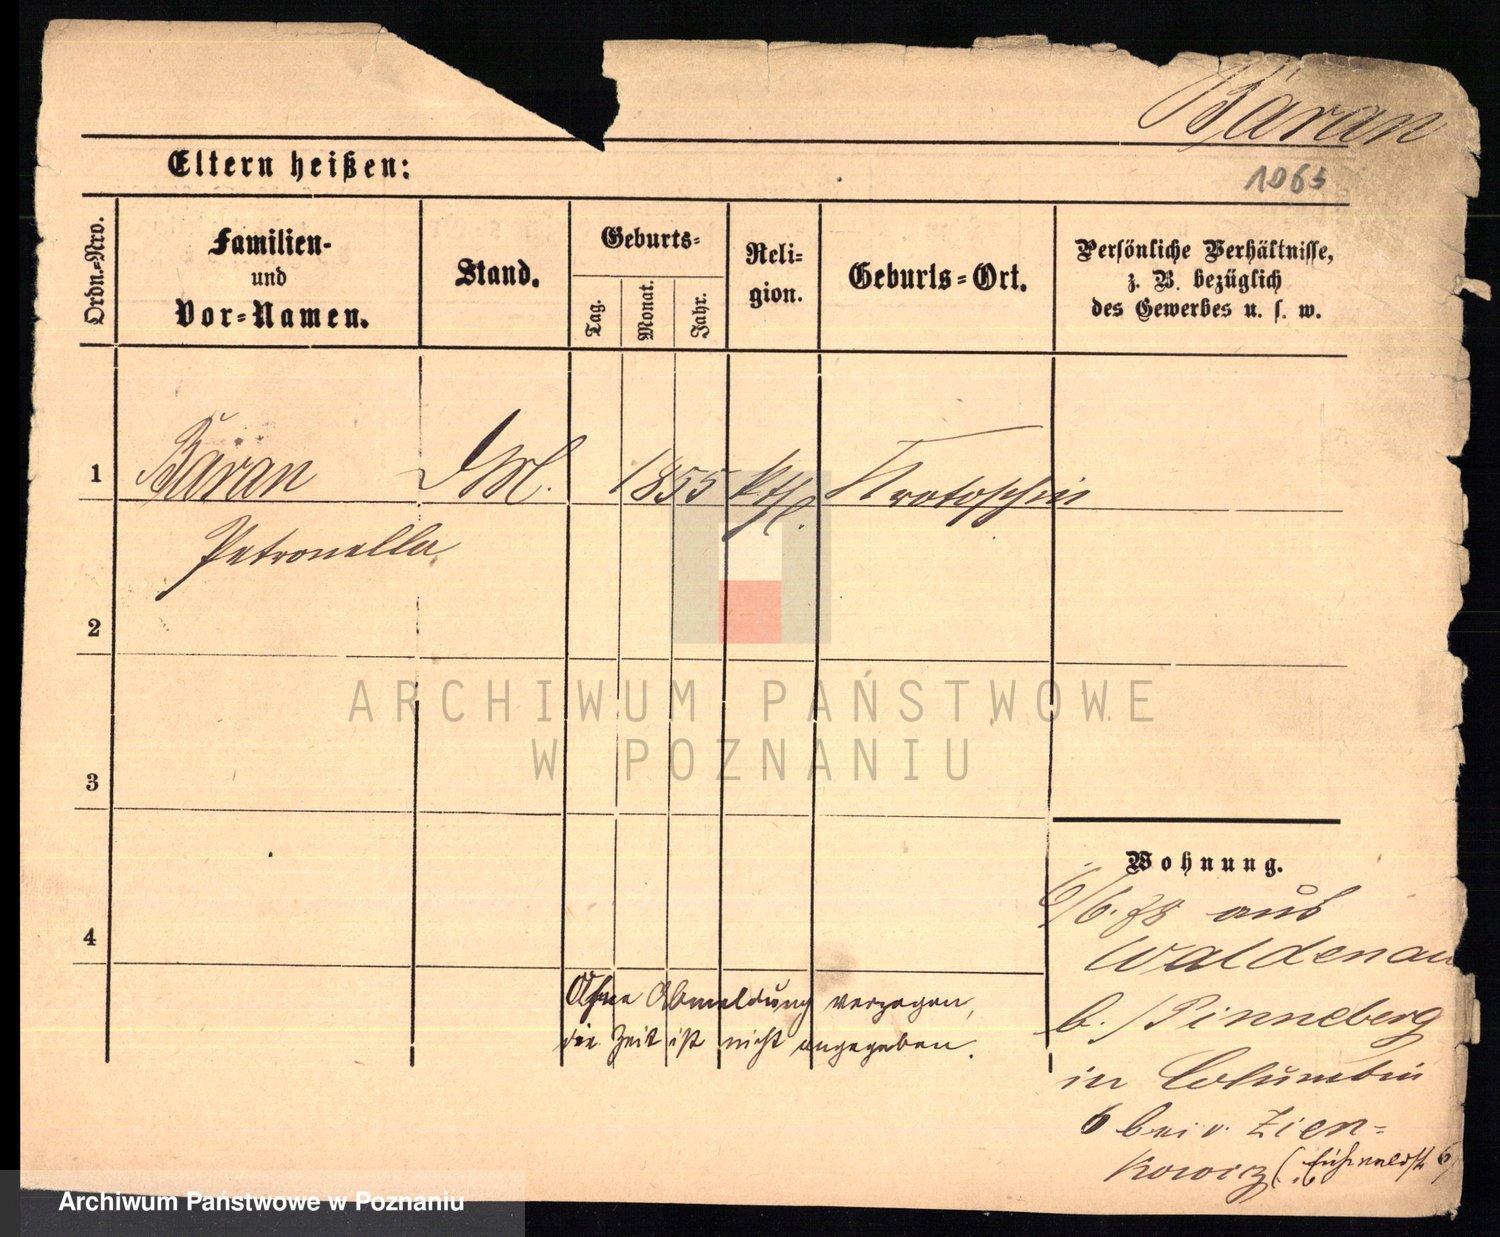 Baran
1063
Eltern heißen:
Ordn.=Nro.
Familien-
und
Vor=Namen.
Stand.
Geburts=
Tag.
Monat.
Jahr.
Reli=
gion.
Geburts=Ort.
Persönliche Verhältnisse,
z. B. bezüglich
des Gewerbes u. s. w.
1 Baran DM. 1855 kth. Krotoschin
Petronella
2
3
4
Wohnung.
6/6.78 aus
Waldenau
b./Pinneberg
in Columbia
6 bei v. Zien=
kowicz
Ohne Abmeldung verzogen,
die Zeit ist nicht angegeben.
ARCHIWUM PAŃSTWOWE
W POZNANIU
Archiwum Państwowe w Poznaniu